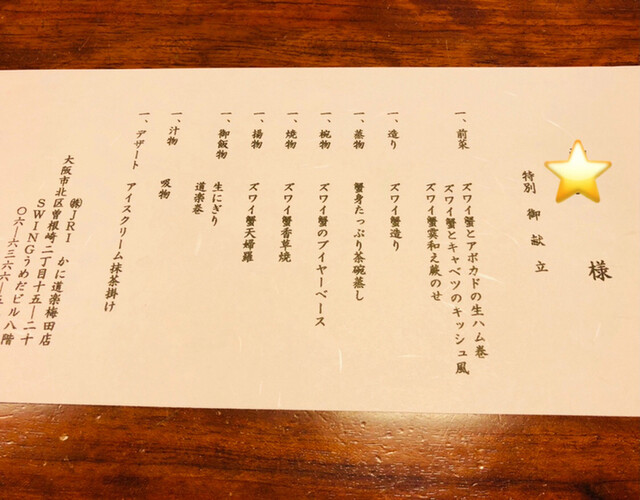 様
特別 御献立
一、前菜 ズワイ蟹とアボカドの生ハム巻
ズワイ蟹とキャベツのキッシュ風
ズワイ蟹霙和え蕨のせ
一、造り ズワイ蟹造り
一、蒸物 蟹身たっぷり茶碗蒸し
一、椀物 ズワイ蟹のブイヤーベース
一、焼物 ズワイ蟹香草焼
一、揚物 ズワイ蟹天婦羅
一、御飯物 生にぎり
道楽巻
一、汁物 吸物
一、デザート アイスクリーム抹茶掛け
㈱JRI かに道楽梅田店
大阪市北区曽根崎二丁目十五ー二十
SWINGうめだビル八階
〇六ー六三六六ー